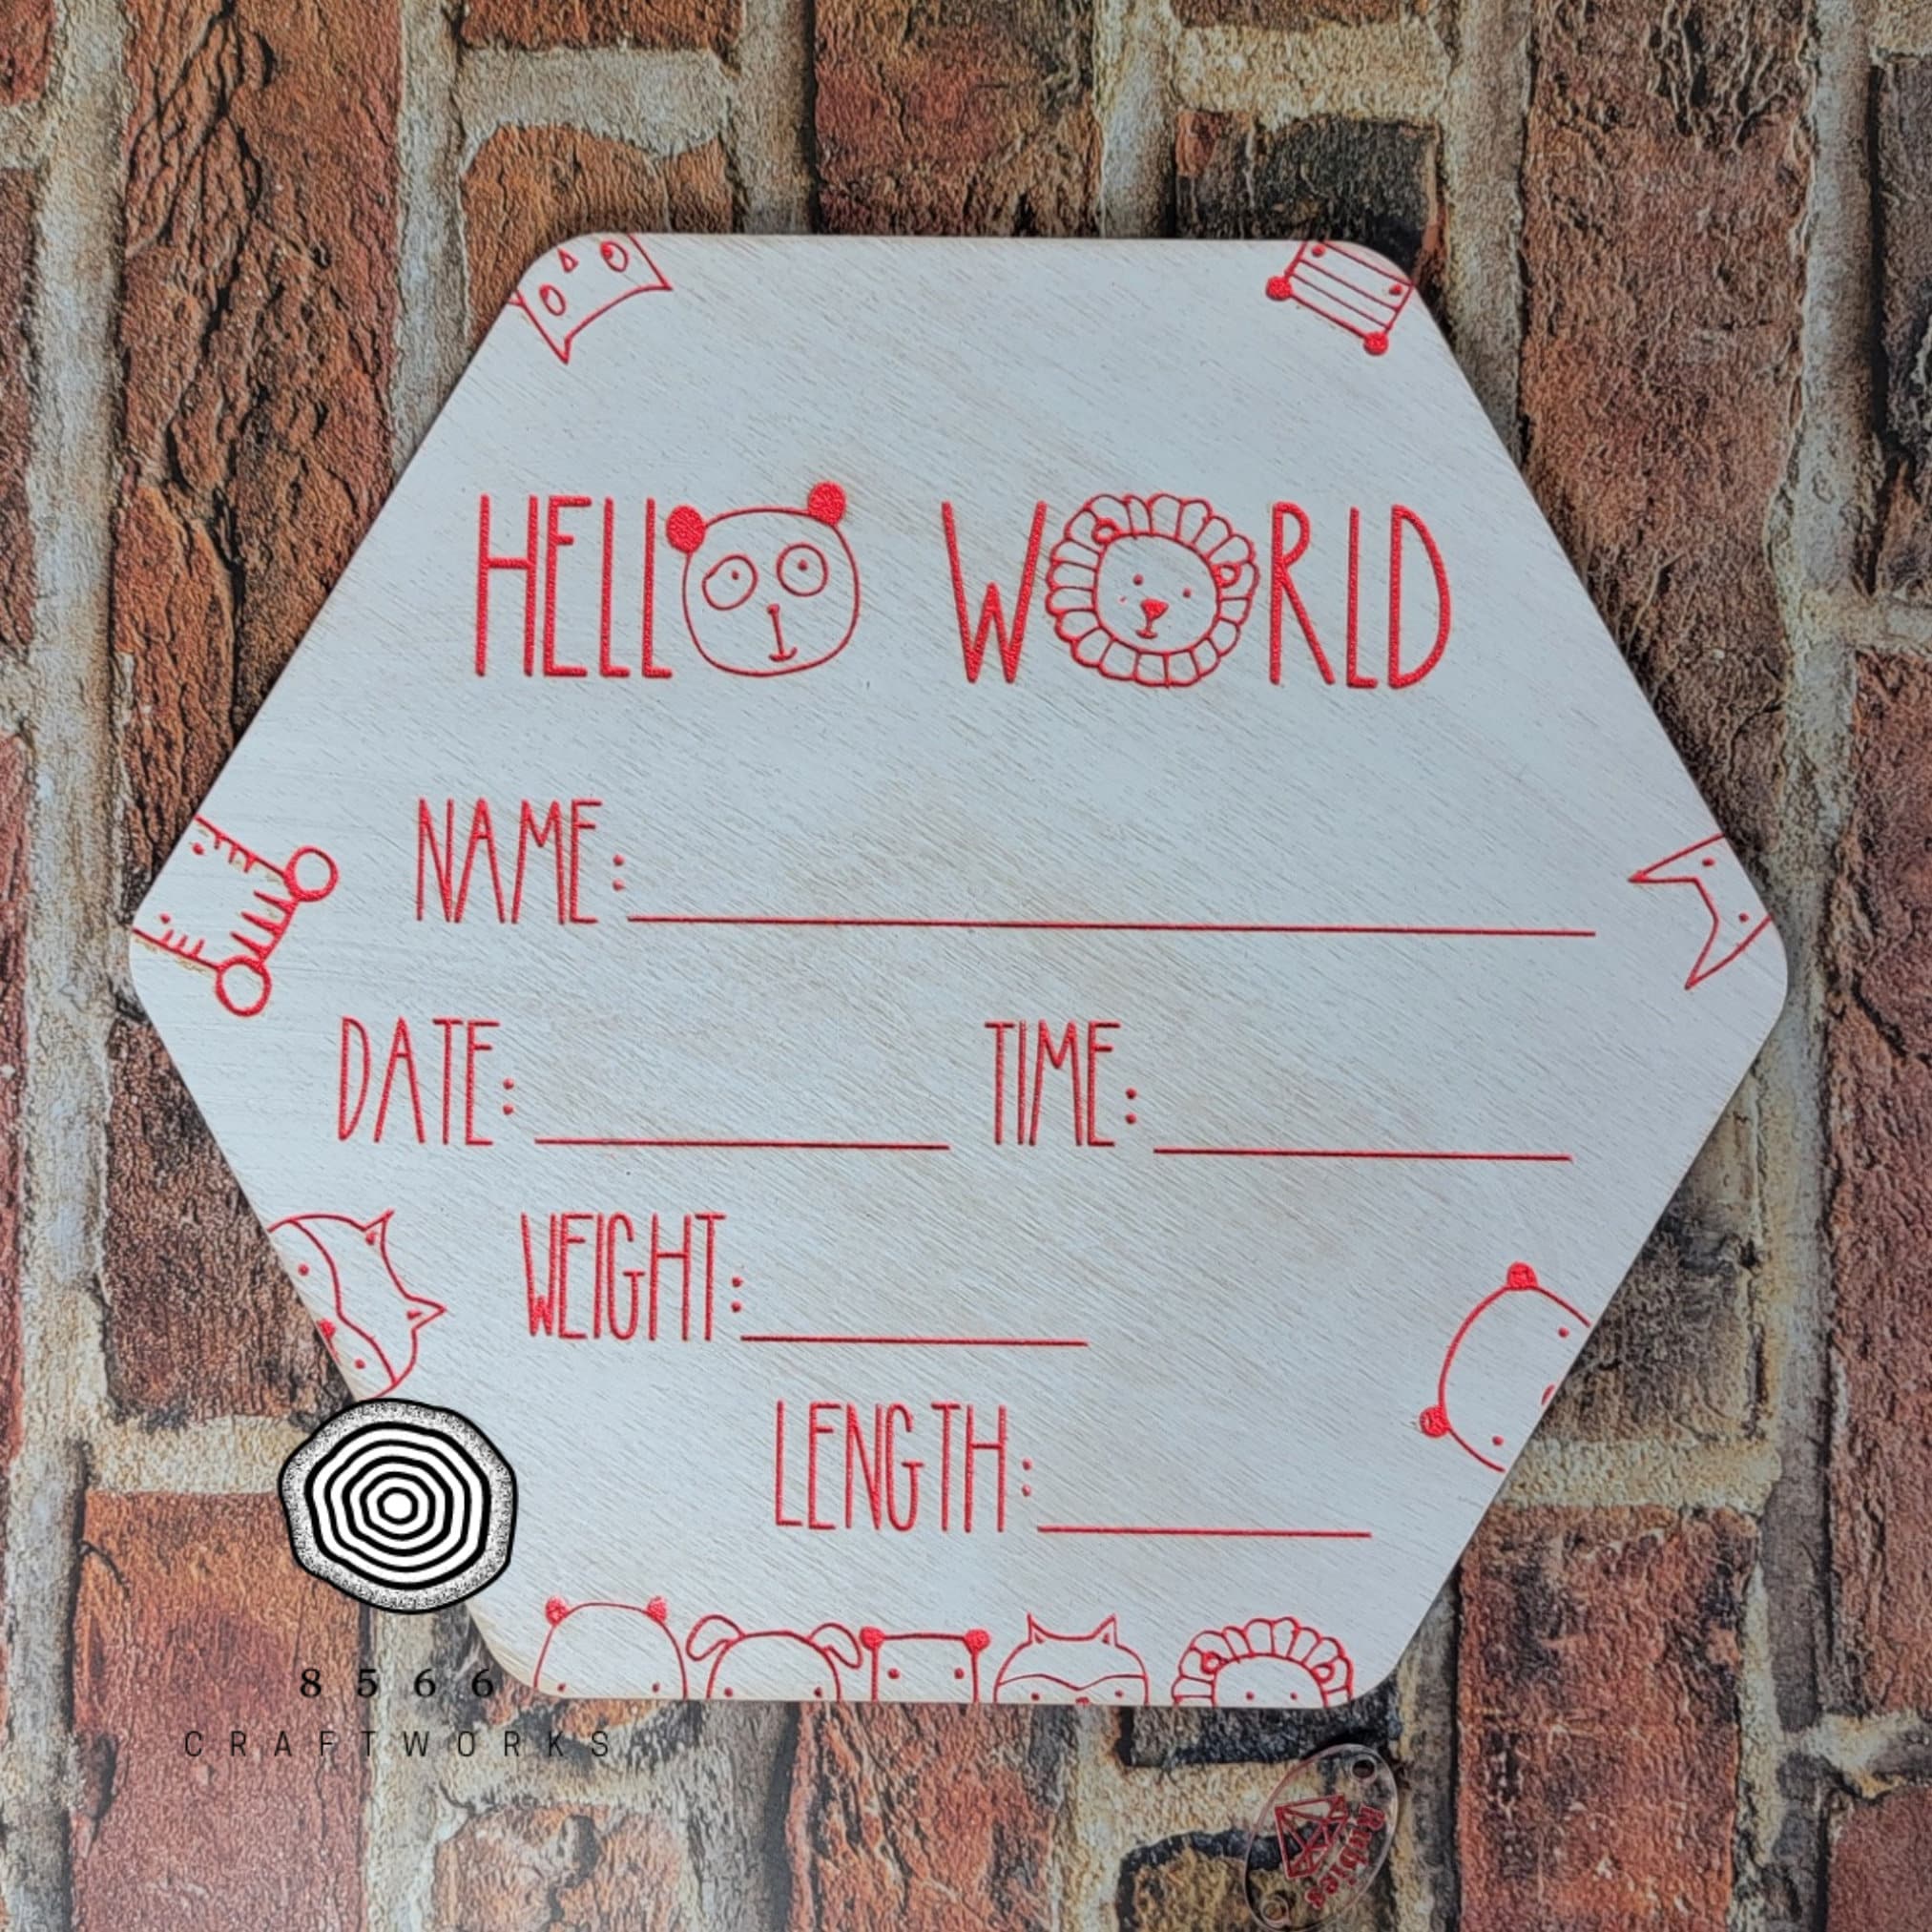 HELLO WORLD
NAME:
DATE: TIME:
WEIGHT:
LENGTH:
8566
CRAFTWORKS
Rubies